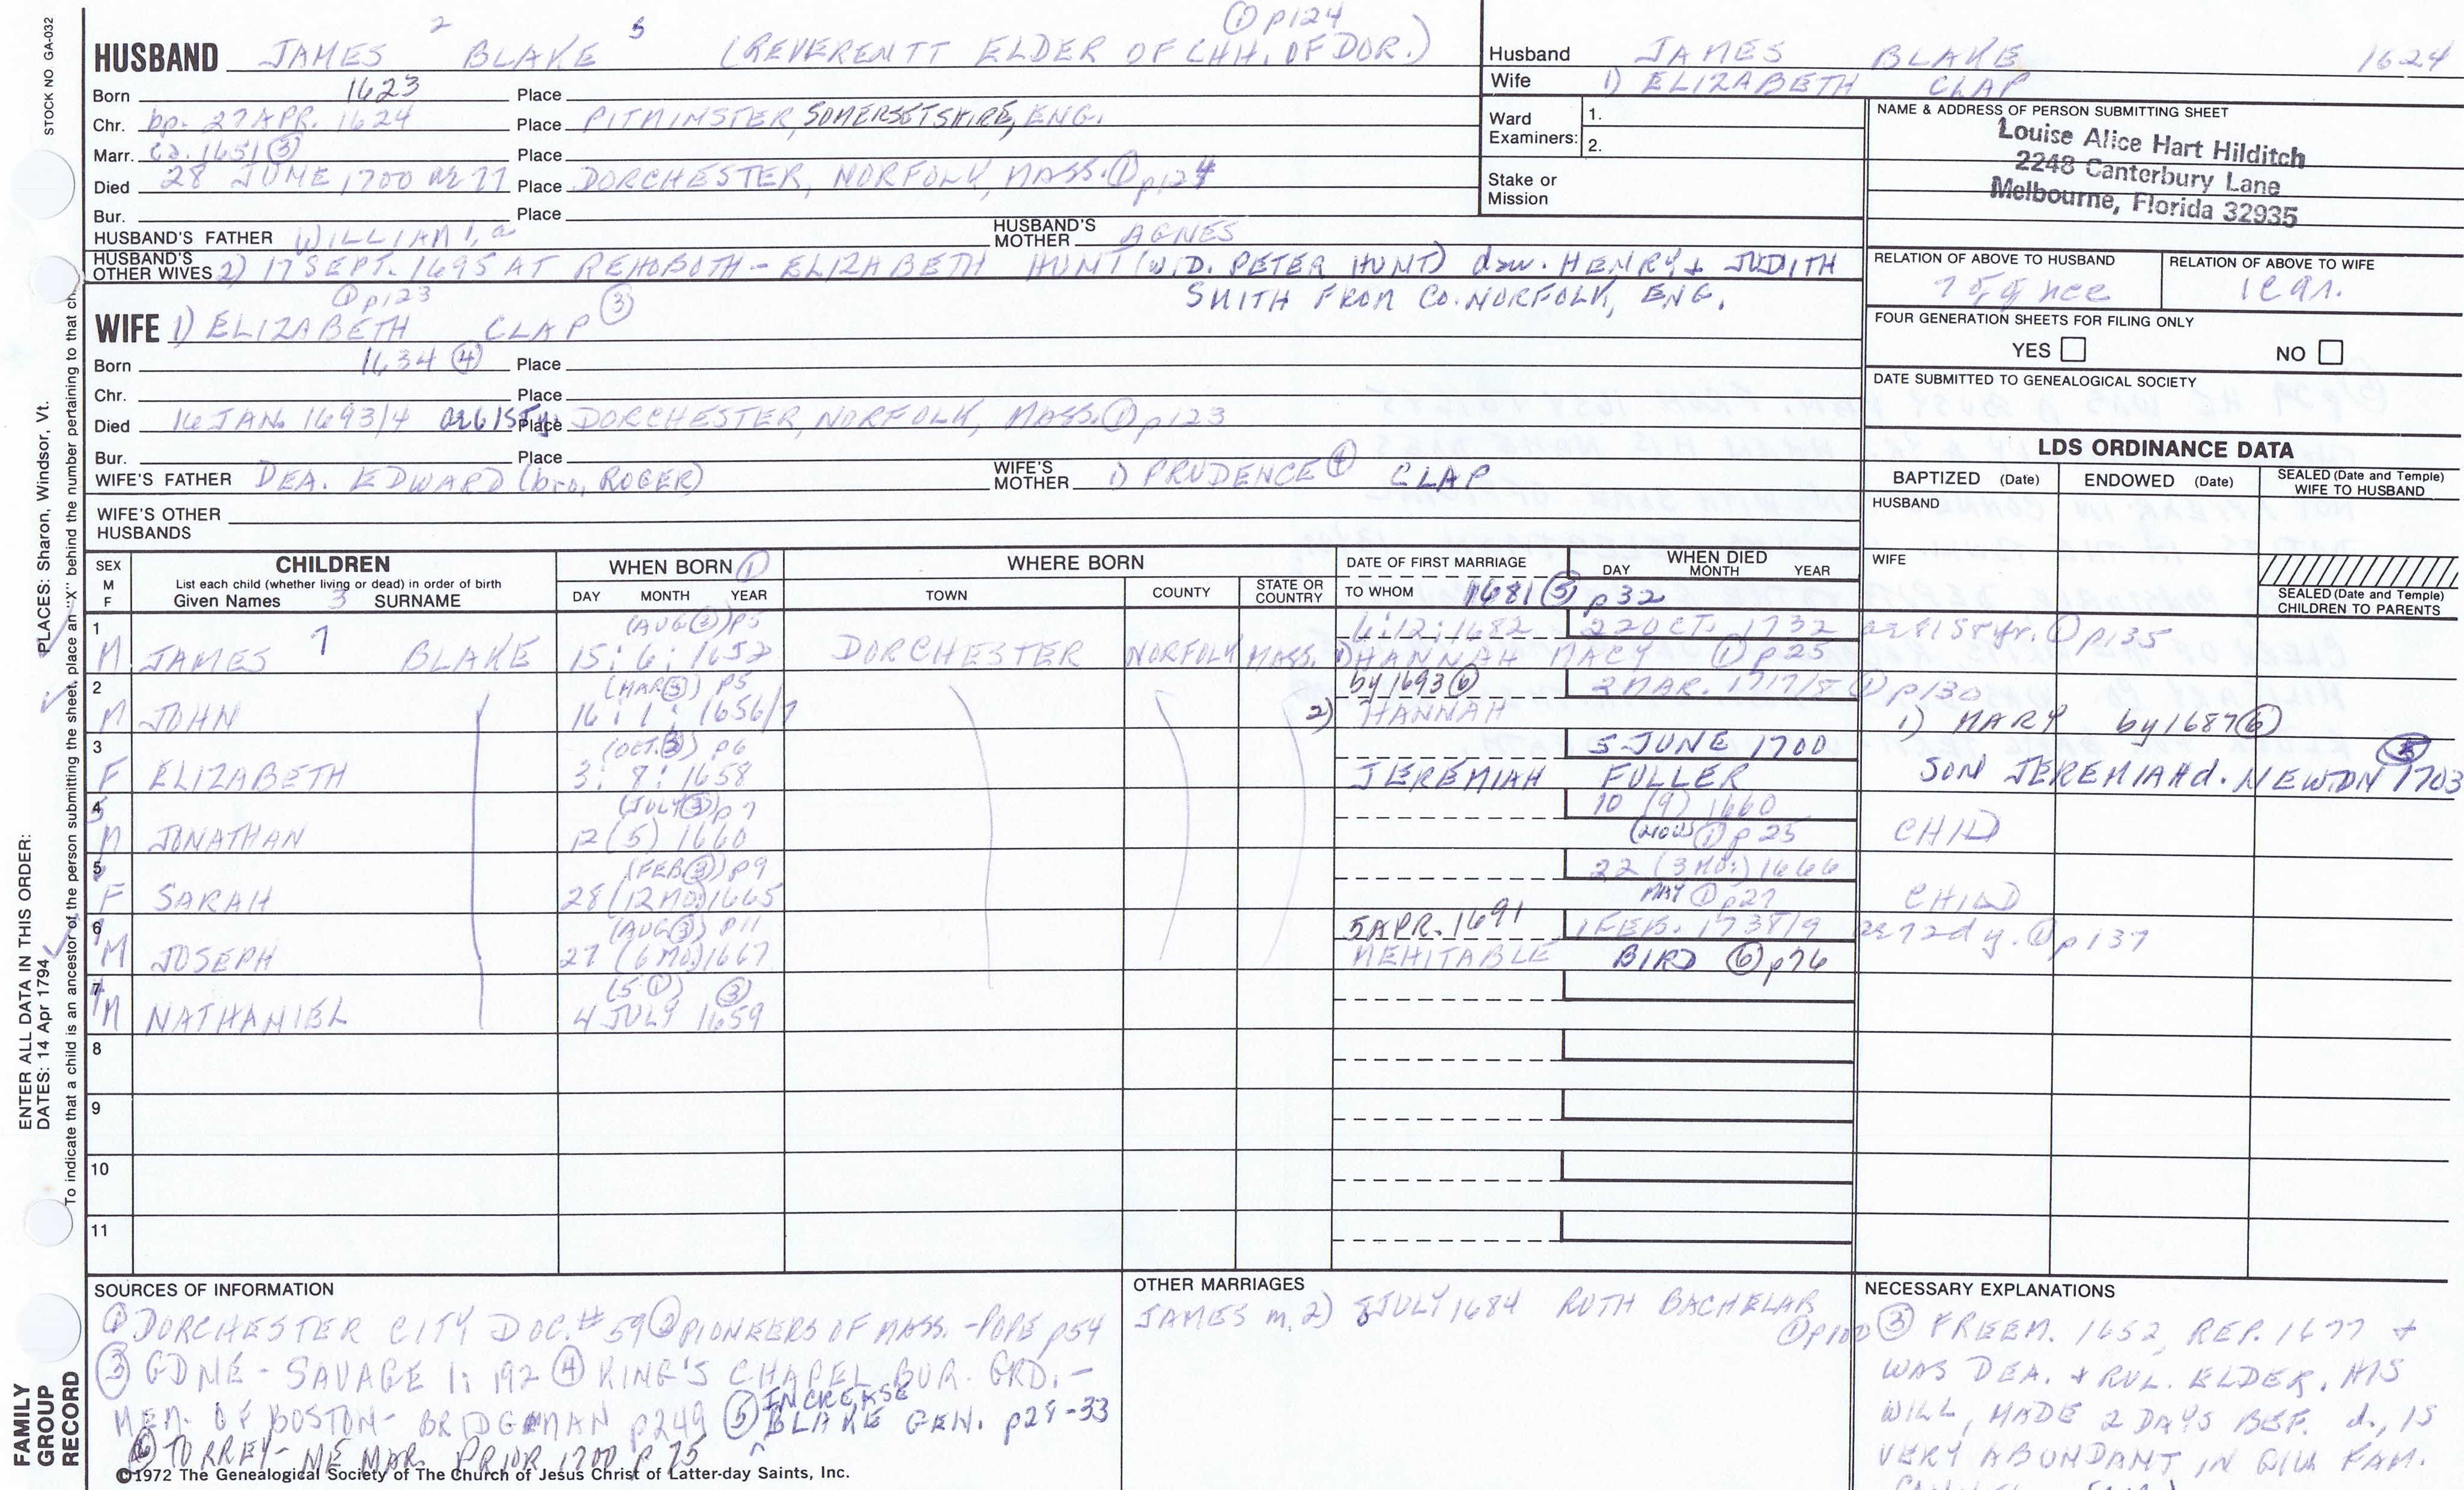 STOCK NO GA-032
① p124
HUSBAND JAMES 2 BLAKE 5 (REVERENTT ELDER OF CHH. OF DOR.)
Born 1623 Place
Chr. bp. 27 APR. 1624 Place PITMINSTER, SOMERSETSHIRE, ENG.
Marr. ca. 1651 ③ Place
Died 28 JUNE 1700 ae 77 Place DORCHESTER, NORFOLK, MASS. ① p124
Bur. Place
HUSBAND'S FATHER WILLIAM 1, a HUSBAND'S MOTHER AGNES
HUSBAND'S OTHER WIVES 2) 17 SEPT. 1695 AT REHOBOTH - ELIZABETH HUNT (WID. PETER HUNT) dau. HENRY + JUDITH
SMITH FROM CO. NORFOLK, ENG.
① p123
WIFE 1) ELIZABETH CLAP ③
Born 1634 ④ Place
Chr. Place
Died 16 JAN. 1693/4 ae 61st y. Place DORCHESTER, NORFOLK, MASS. ① p123
Bur. Place
WIFE'S FATHER DEA. EDWARD (bro. ROGER) WIFE'S MOTHER 1) PRUDENCE ④ CLAP
WIFE'S OTHER HUSBANDS
Husband JAMES BLAKE 1624
Wife 1) ELIZABETH CLAP
Ward Examiners: 1.
2.
Stake or Mission
NAME & ADDRESS OF PERSON SUBMITTING SHEET
Louise Alice Hart Hilditch
2248 Canterbury Lane
Melbourne, Florida 32935
RELATION OF ABOVE TO HUSBAND RELATION OF ABOVE TO WIFE
FOUR GENERATION SHEETS FOR FILING ONLY
YES NO
DATE SUBMITTED TO GENEALOGICAL SOCIETY
LDS ORDINANCE DATA
BAPTIZED (Date) ENDOWED (Date) SEALED (Date and Temple) WIFE TO HUSBAND
HUSBAND
WIFE
SEALED (Date and Temple) CHILDREN TO PARENTS
SEX M F
CHILDREN
List each child (whether living or dead) in order of birth
Given Names 3 SURNAME
WHEN BORN ①
DAY MONTH YEAR
WHERE BORN
TOWN COUNTY STATE OR COUNTRY
DATE OF FIRST MARRIAGE
TO WHOM 1681 ⑤ p32
WHEN DIED
DAY MONTH YEAR
1 (AUG ③) p5 6:12:1682 22 OCT. 1732 ae 81st yr. ① p135
M JAMES 7 BLAKE 15:6:1652 DORCHESTER NORFOLK MASS. 1) HANNAH MACY ① p25
2 (MAR ③) p5 by 1693 ⑥ 2 MAR. 1717/8 ① p130
M JOHN 16:1:1656/7 2) HANNAH 1) MARY by 1687 ⑥
3 (OCT. ③) p6 5 JUNE 1700
F ELIZABETH 3:8:1658 JEREMIAH FULLER SON JEREMIAH d. NEWTON 1703
4 5 (JULY ③) p7 10 (9) 1660
M JONATHAN 12 (5) 1660 (NOV) ① p25 CHILD
5 (FEB ③) p9 22 (3 MO:) 1666
F SARAH 28 (12 MO.) 1665 MAY ① p27 CHILD
6 (AUG ③) p11 5 APR. 1691 1 FEB. 1738/9 ae 72d y. ① p137
M JOSEPH 27 (6 MO.) 1667 MEHITABLE BIRD ⑥ p76
7 (5 ①) ③
M NATHANIEL 4 JULY 1659
8
9
10
11
SOURCES OF INFORMATION
① DORCHESTER CITY DOC. # 59 ② PIONEERS OF MASS. - POPE p54
③ GDNE - SAVAGE 1: 192 ④ KING'S CHAPEL BUR. GRD. -
MEM. OF BOSTON - BRIDGMAN p249 ⑤ INCREASE BLAKE GEN. p29-33
⑥ TORREY - NE MAR. PRIOR 1700 p 75
©1972 The Genealogical Society of The Church of Jesus Christ of Latter-day Saints, Inc.
OTHER MARRIAGES
JAMES m. 2) 8 JULY 1684 RUTH BACHELAR
① p100
NECESSARY EXPLANATIONS
③ FREEM. 1652, REP. 1677 +
WAS DEA. + RUL. ELDER. HIS
WILL, MADE 2 DAYS BEF. d., IS
VERY ABUNDANT IN FAM.
ENTER ALL DATA IN THIS ORDER:
DATES: 14 Apr 1794
PLACES: Sharon, Windsor, Vt.
To indicate that a child is an ancestor of the person submitting the sheet, place an "X" behind the number pertaining to that ch
FAMILY GROUP RECORD